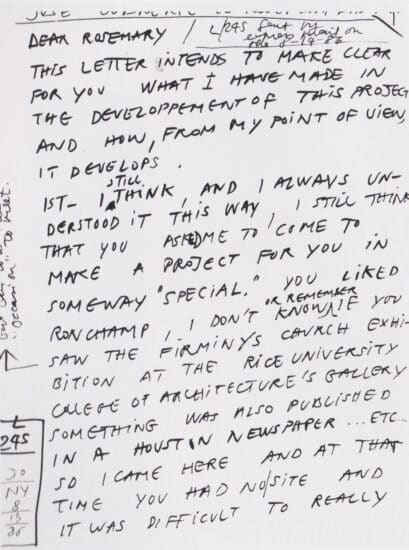 DEAR ROSEMARY / L/24S Sent by
express mail on
THIS LETTER INTENDS TO MAKE CLEAR
FOR YOU WHAT I HAVE MADE IN
THE DEVELOPPEMENT OF THIS PROJECT
AND HOW, FROM MY POINT OF VIEW,
IT DEVELOPS.
1ST- I STILL THINK, AND I ALWAYS UN-
DERSTOOD IT THIS WAY, I STILL THINK
THAT YOU ASKED ME TO COME TO
MAKE A PROJECT FOR YOU IN
SOMEWAY "SPECIAL." YOU LIKED
RONCHAMP, I DON'T KNOW OR REMEMBER IF YOU
SAW THE FIRMINYS CHURCH EXHI-
BITION AT THE RICE UNIVERSITY
COLLEGE OF ARCHITECTURE'S GALLERY
SOMETHING WAS ALSO PUBLISHED
IN A HOUSTON NEWSPAPER ... ETC..
SO I CAME HERE AND AT THAT
TIME YOU HAD NO/SITE AND
IT WAS DIFFICULT TO REALLY
"occasion" to meet.
L
24S
JO
NY
8
13
86